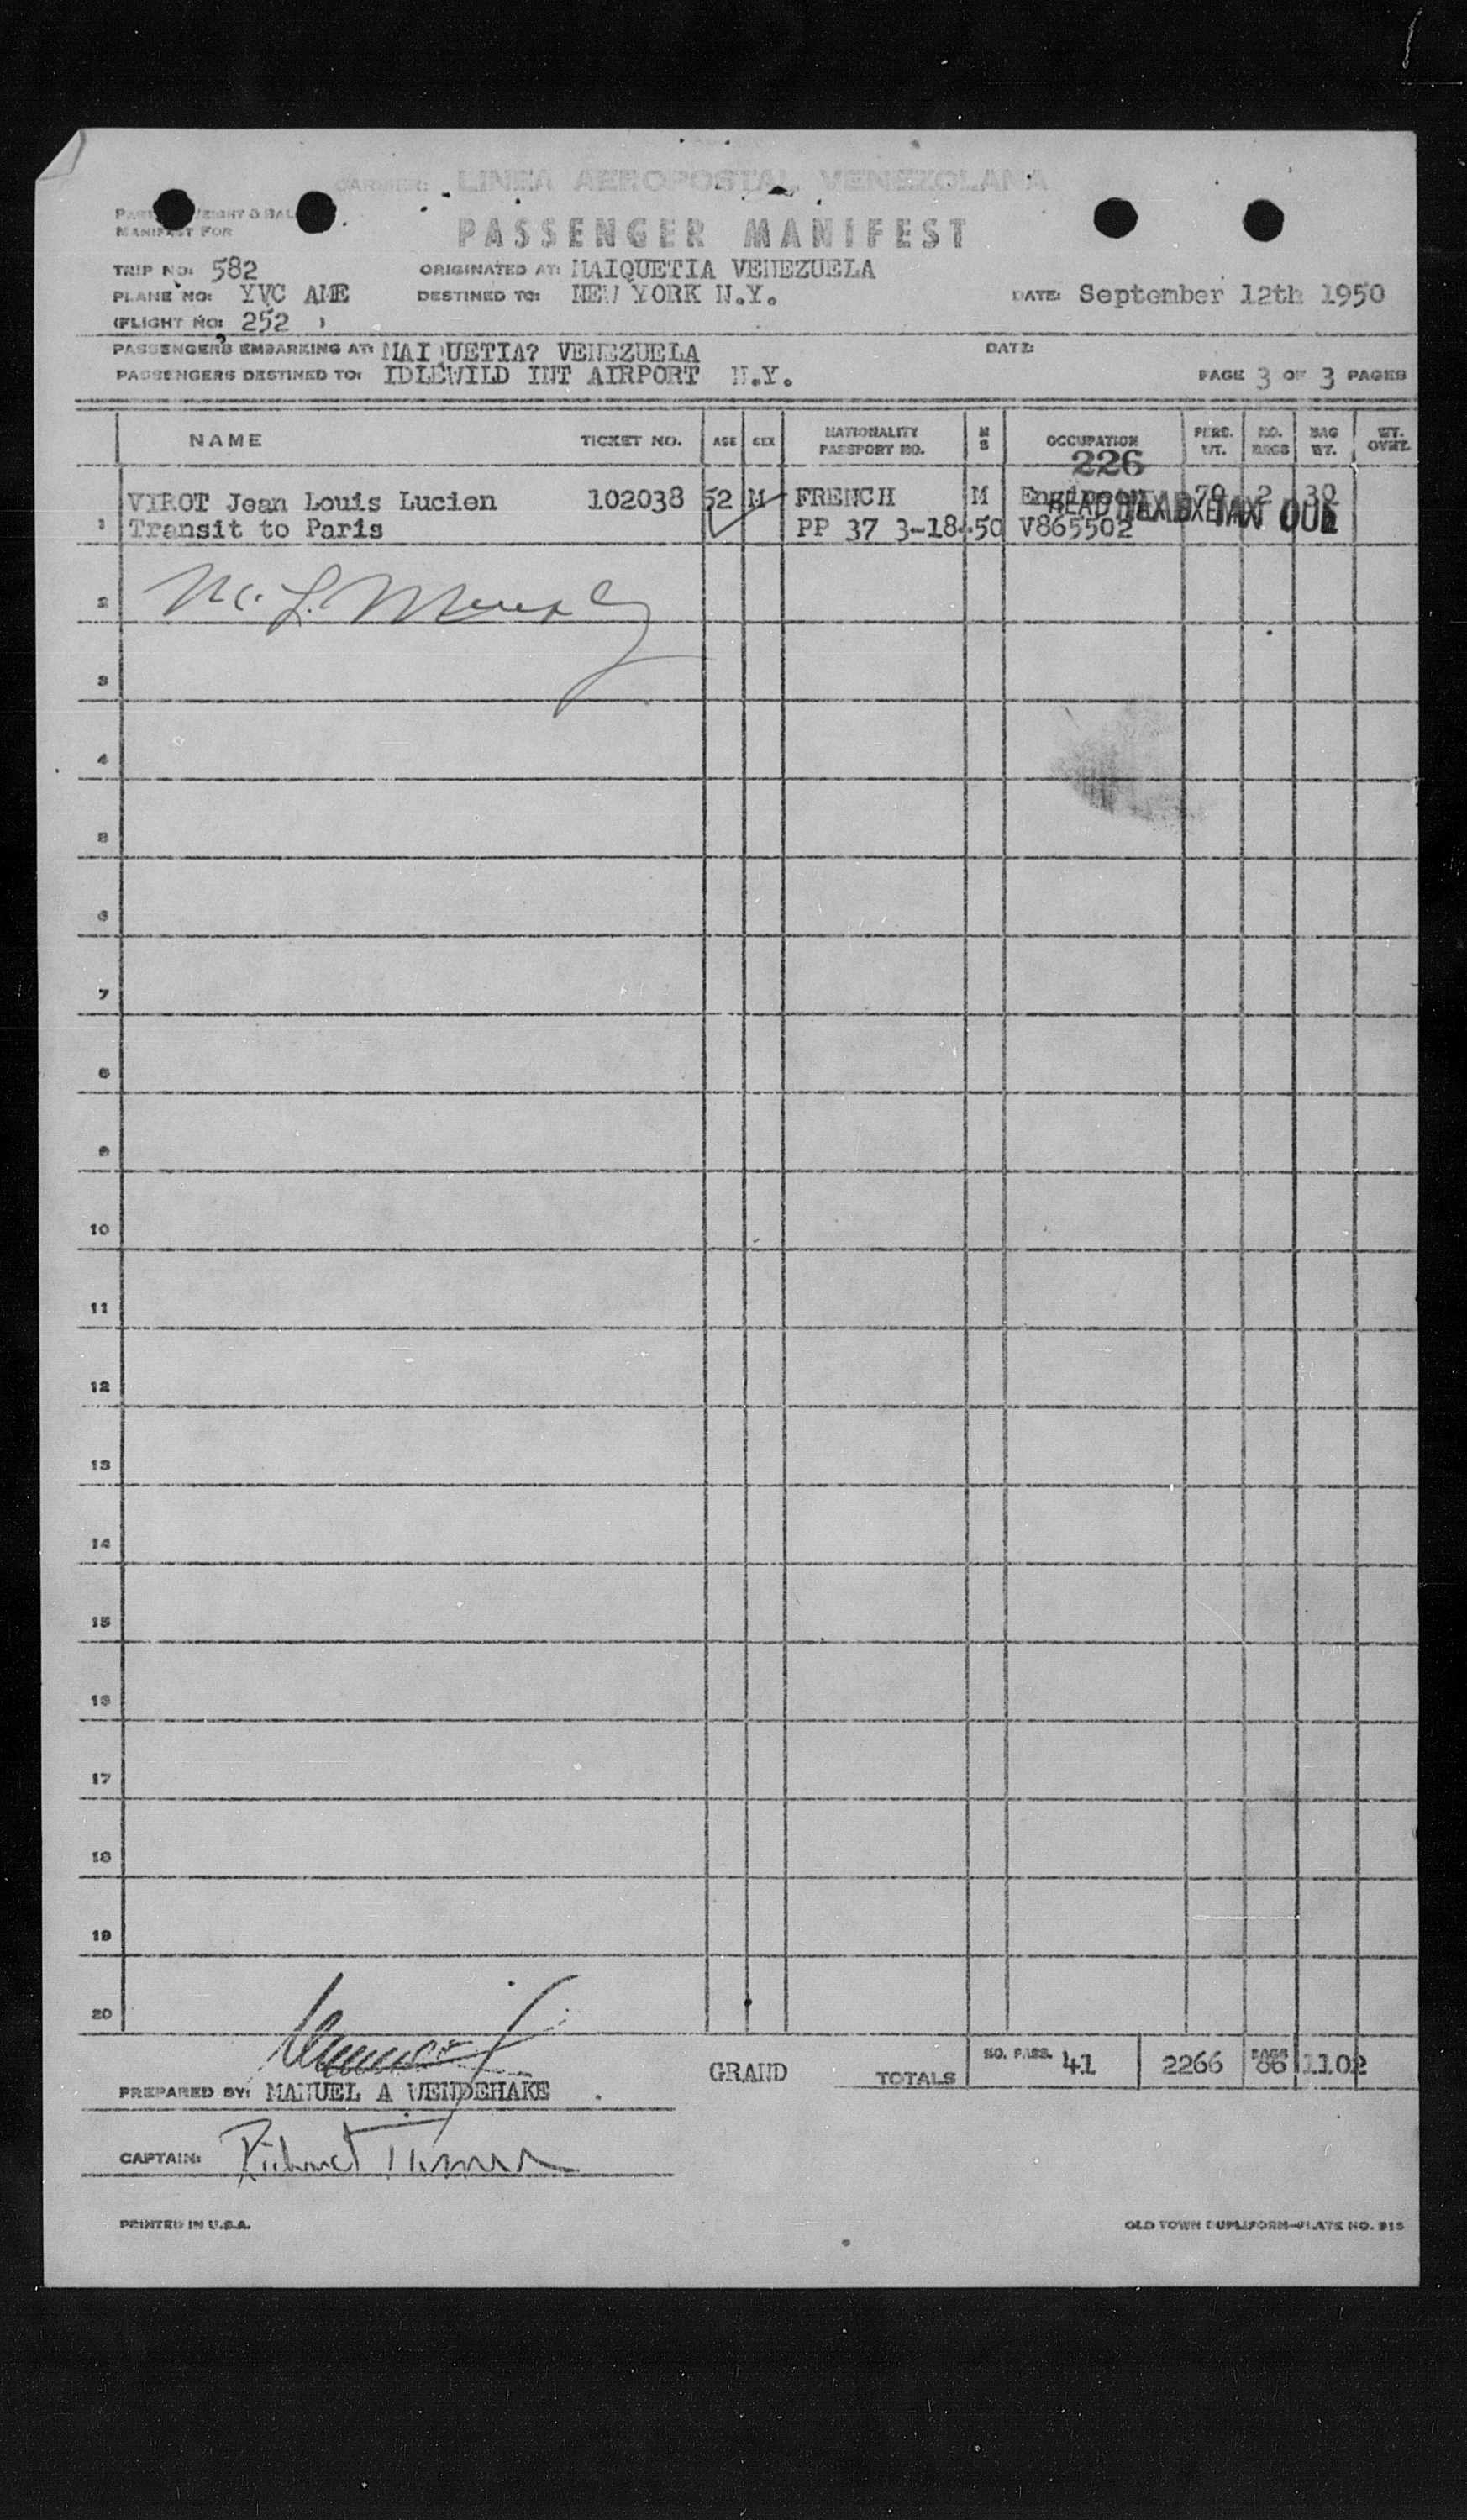 CARRIER: LINEA AEROPOSTAL VENEZOLANA
MANIFEST FOR
PASSENGER MANIFEST
TRIP NO: 582 ORIGINATED AT: MAIQUETIA VENEZUELA
PLANE NO: YVC AME DESTINED TO: NEW YORK N.Y. DATE: September 12th 1950
(FLIGHT NO: 252 )
PASSENGERS EMBARKING AT: MAI QUETIA? VENEZUELA DATE:
PASSENGERS DESTINED TO: IDLEWILD INT AIRPORT N.Y. PAGE 3 OF 3 PAGES
NAME TICKET NO. AGE SEX NATIONALITY PASSPORT NO. M S OCCUPATION PERS. WT. NO. BAGS BAG WT. WT. OVHT.
226
VIROT Jean Louis Lucien 102038 52 M FRENCH M Engineer 70 2 30
1 Transit to Paris PP 37 3-18-50 V865502
HEAD TAX
2
3
4
5
6
7
8
9
10
11
12
13
14
15
16
17
18
19
20
GRAND TOTALS NO. PASS. 41 2266 BAGS 86 1102
PREPARED BY: MANUEL A WENDEHAKE
CAPTAIN: Richard
PRINTED IN U.S.A. OLD TOWN DUPLIFORM-PLATE NO. 915